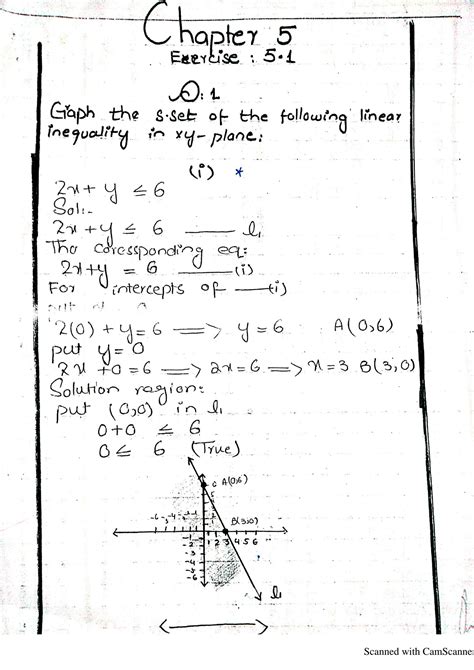 Chapter 5
Exercise : 5.1
Q:1
Graph the s.set of the following linear
inequality in xy-plane:
(i) *
2x + y ≤ 6
Sol:-
2x + y ≤ 6 —— l₁
The coressponding eq:
2x+y = 6 ——(i)
For intercepts of ——(i)
2(0) + y = 6 => y = 6 A(0,6)
put y = 0
2x + 0 = 6 => 2x = 6 => x = 3 B(3,0)
Solution region:
put (0,0) in l₁
0+0 ≤ 6
0 ≤ 6 (True)
A(0,6)
B(3,0)
1 2 3 4 5 6
l₁
Scanned with CamScanne